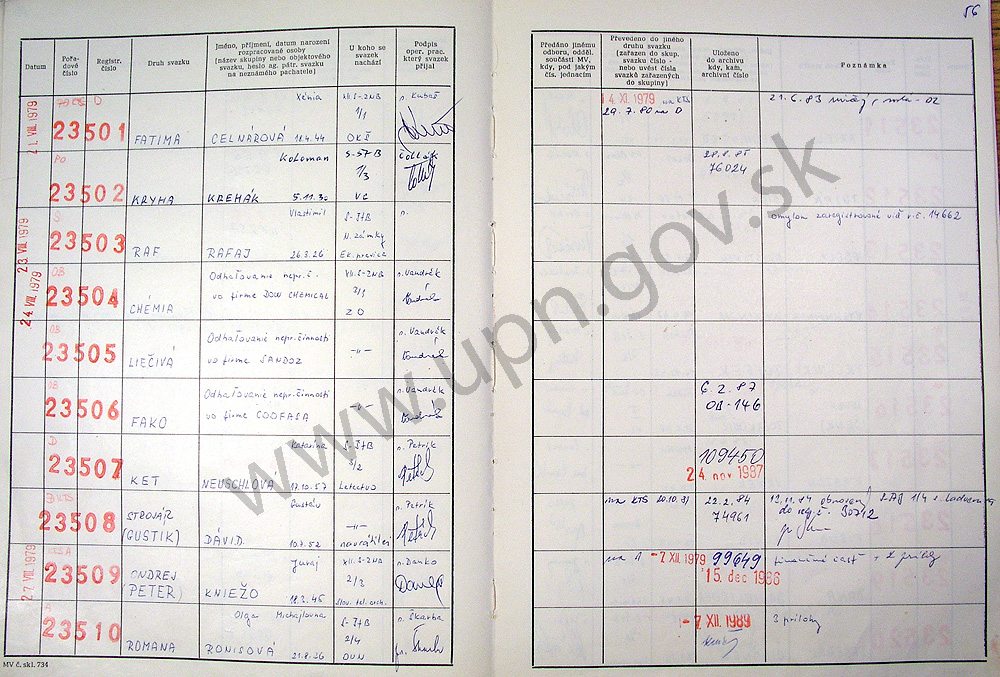 56
Datum
Pořa-
dové
číslo
Registr.
číslo
Druh svazku
Jméno, příjmení, datum narození
rozpracované osoby
(název skupiny nebo objektového
svazku, heslo ag. pátr. svazku
na neznámého pachatele)
U koho se
svazek
nachází
Podpis
oper. prac.
který svazek
přijal
Předáno jinému
odboru, odděl.
součásti MV,
kdy, pod jakým
čís. jednacím
Převedeno do jiného
druhu svazku
(zařazen do skup.
svazku číslo -
nebo uvést čísla
svazků zařazených
do skupiny)
Uloženo
do archivu
kdy, kam,
archivní číslo
Poznámka
21. VIII. 1979
23501
FATIMA
Xénia
CELNAROVÁ 18.4.44
XII.S-ŠNB
1/1
OKŠ
p. Kubaš
14. XI. 1979 na KTS
29.7.80 na D
21.6.83
PO
23502
KRYHA
Koloman
KREHÁK 5.11.30
S-ŠTB
7/3
VC
28.8.85
76024
23. VIII. 1979
Š
23503
RAF
Vlastimil
RAFAJ 26.3.26
S-ŠTB
N. zámky
p.
omylom zaregistrované viď r.č. 14662
24. VIII. 1979
OB
23504
CHÉMIA
Odhaľovanie nepr. č.
vo firme DOW CHEMICAL
XII.S-ŠNB
2/1
ZO
p. Vandrák
OB
23505
LIEČIVÁ
Odhaľovanie nepr. činnosti
vo firme SANDOZ
-"-
p. Vandrák
OB
23506
FAKO
Odhaľovanie nepr. činnosti
vo firme COOFASA
-"-
p. Vandrák
6.2.87
OB-146
D
23507
KET
Katarína
NEUSCHLOVÁ 17.10.57
S-ŠTB
3/2
Letectvo
p. Petrík
109450
24. nov 1987
KTS
23508
STROJÁR
(GUSTIK)
Gustáv
DÁVID 10.7.52
-"-
navrátilci
p. Petrík
na KTS 20.10.81
22.2.84
74961
12.11.84 obnovený
do reg. č. 30712
27. VIII. 1979
23509
ONDREJ
(PETER)
Juraj
KNIEŽO 18.2.46
XII.S-ŠNB
2/3
p. Danko
na A - 7 XII. 1979
99649
15. dec 1986
finančná časť + 2 prílohy
A
23510
ROMANA
Oľga Michajlovna
RONISOVÁ 21.8.26
S-ŠTB
2/4
OVN
p. Škarba
- 7 XII. 1989
3 prílohy
MV č. skl. 734
www.upn.gov.sk